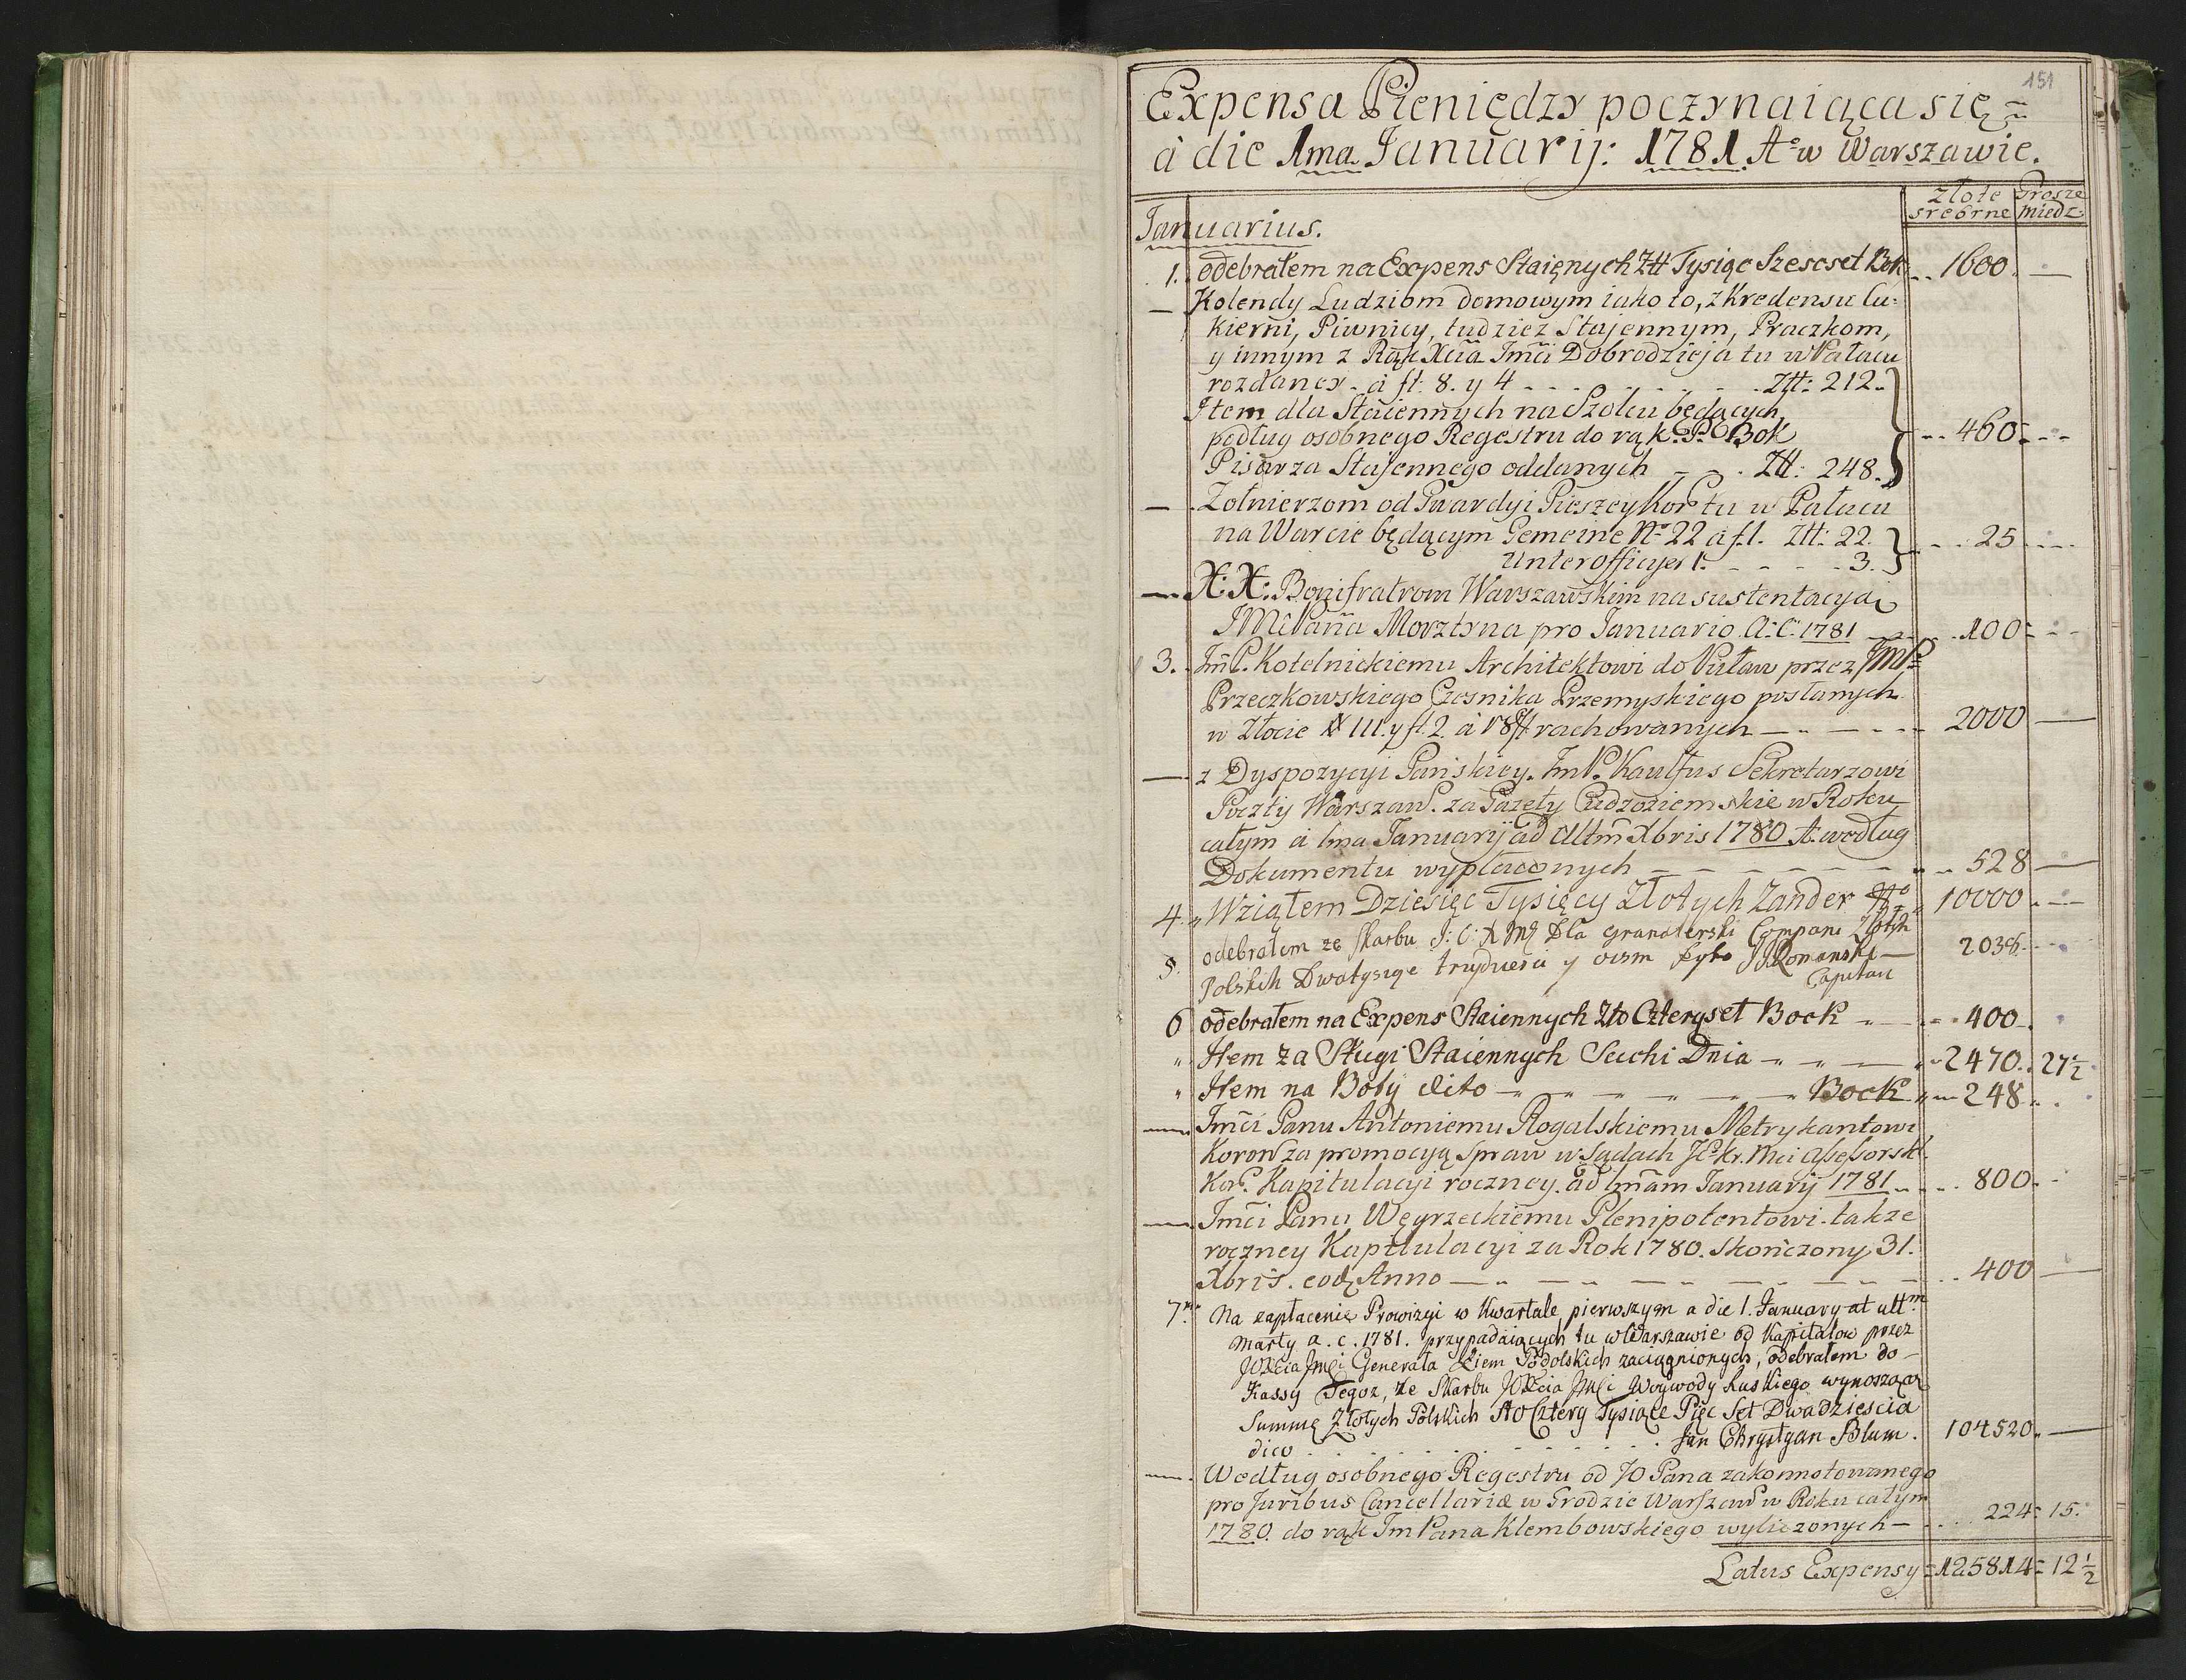 151
Expensa Pieniędzy poczynaiąca się
à die 1ma Januarij: 1781 Ao w Warszawie.
złote srebrne Grosze miedz:
Januarius.
1. odebrałem na Expens Staięnych Ztt Tysiąc Szescset Bok 1600 —
— Kolendy Ludziom domowym iako to, z Kredensu Cu:
kierni, Piwnicy, tudziez Stajennym, Praczkom,
y innym z Rąk Xcia Jmci Dobrodzieja tu w Pałacu
rozdaney à fl: 8. y 4 - - - Ztt: 212.
Item dla Staiennych na Szolcu będących,
podług osobnego Regestru do rąk P. Bok 460
Pisarza Stajennego oddanych - - Ztt: 248.
— Zołnierzom od Gwardyi Pieszey Kor tu w Pałacu
na Warcie będącym Gemeine No 22 a f.1. Ztt: 22. 25
Unterofficyer 1. - - - - 3.
— X: X: Bonifratrom Warszawskim na sustentacyą
JMCPana Morztyna pro Januario a: c: 1781 100
3. JmP. Kotelnickiemu Architektowi do Puław przez JmP
Przeczkowskiego Czesnika Przemyskiego posłanych
w Złocie # 111. y fl. 2. à 18 fl rachowanych — 2000 —
— z Dyspozycyi Pańskiey. JmP. Kaulfus Sekretarzowi
Poczty Warszaw. za Gazety Cudzoziemskie w Roku
całym à 1ma Januarij ad Ultm Xbris 1780 A. według
Dokumentu wypłaconych — 528 —
4. Wziąłem Dziesięc Tysięcy Złotych Zander 10000 —
5. odebrałem ze skarbu J: O: X Mę Dla granaterski Compani Złotych
Polskich Dwatysiąc trzydziesci y osm JRomanski 2038
Capitan
6 odebrałem na Expens Staiennych Zło Czteryset Bock 400
" Item za Sługi Staiennych Suchi Dnia 2470. 27½
" Item na Boty dito Bock 248
— Jmci Panu Antoniemu Rogalskiemu Metrykantowi
Koron za promocyą spraw w Sądach JKr. Mci Assessorsk
Kor. Kapitulacyi roczney. ad 1mam Januarij 1781 800
— Jmci Panu Węgrzeckiemu Plenipotentowi takze
roczney Kapitulacyi za Rok 1780. Skończony 31.
Xbris. eod Anno — 400 —
7. Na zapłacenie Prowizyi w Kwartale pierwszym a die 1. January at ultm
Marty a. c. 1781. przypadaiących tu w Warszawie od Kapitałow przez
JOXcia Jmci Generała Ziem Podolskich zaciągnionych, odebrałem do
Kassy Tegoz, ze Skarbu JOXcia Jmci Woywody Ruskiego wynoszącą
Summę Złotych Polskich Sto Cztery Tysiące Pięc Set Dwadziescia
dico Jan Chrystyan Blum. 104520 —
— Według osobnego Regestru od JO Pana zakonnotowanego
pro Juribus Cancellariæ w Grodzie Warszaw w Roku całym
1780. do rąk JmPana Klembowskiego wyliczonych — 224: 15.
Latus Expensy = 125814 = 12½